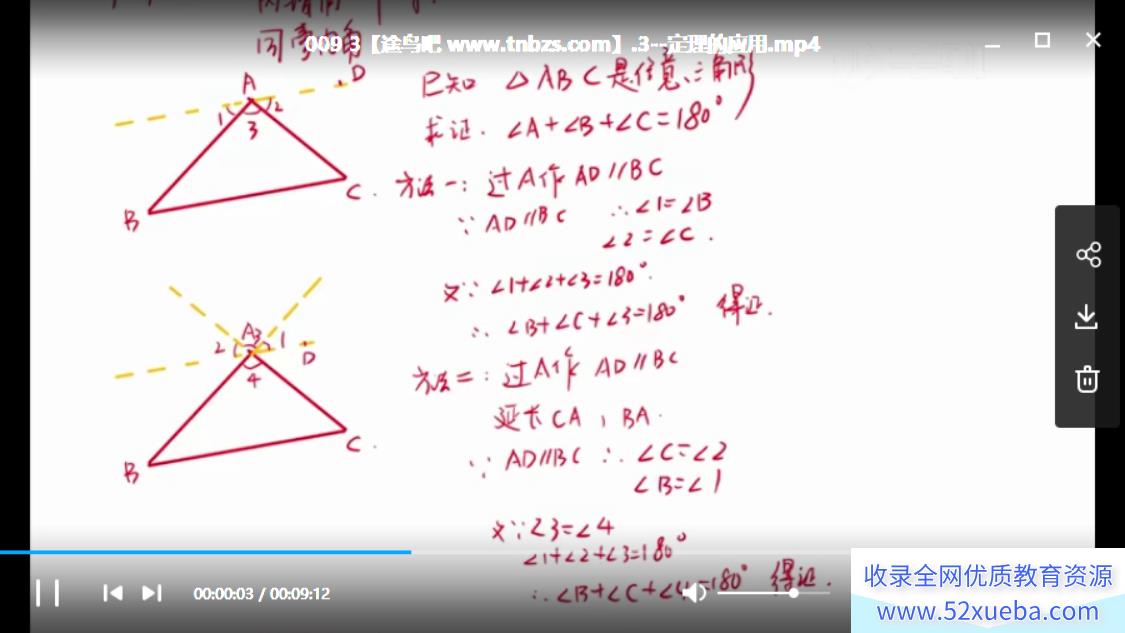 同旁内角
009 3【途鸟吧 www.tnbzs.com】.3--定理的应用.mp4
A
D
1
2
3
B
C
已知 △ABC是任意三角形
求证. ∠A+∠B+∠C=180°
方法一: 过A作 AD∥BC
∵ AD∥BC ∴ ∠1=∠B
∠2=∠C.
又∵ ∠1+∠2+∠3=180°.
∴ ∠B+∠C+∠3=180° 得证.
A
3
2
1
D
4
B
C
方法二: 过A作 AD∥BC
延长CA, BA.
∵ AD∥BC ∴ ∠C=∠2
∠B=∠1
又∵∠3=∠4
∠1+∠2+∠3=180°
∴ ∠B+∠C+∠4=180° 得证.
00:00:03 / 00:09:12
收录全网优质教育资源
www.52xueba.com